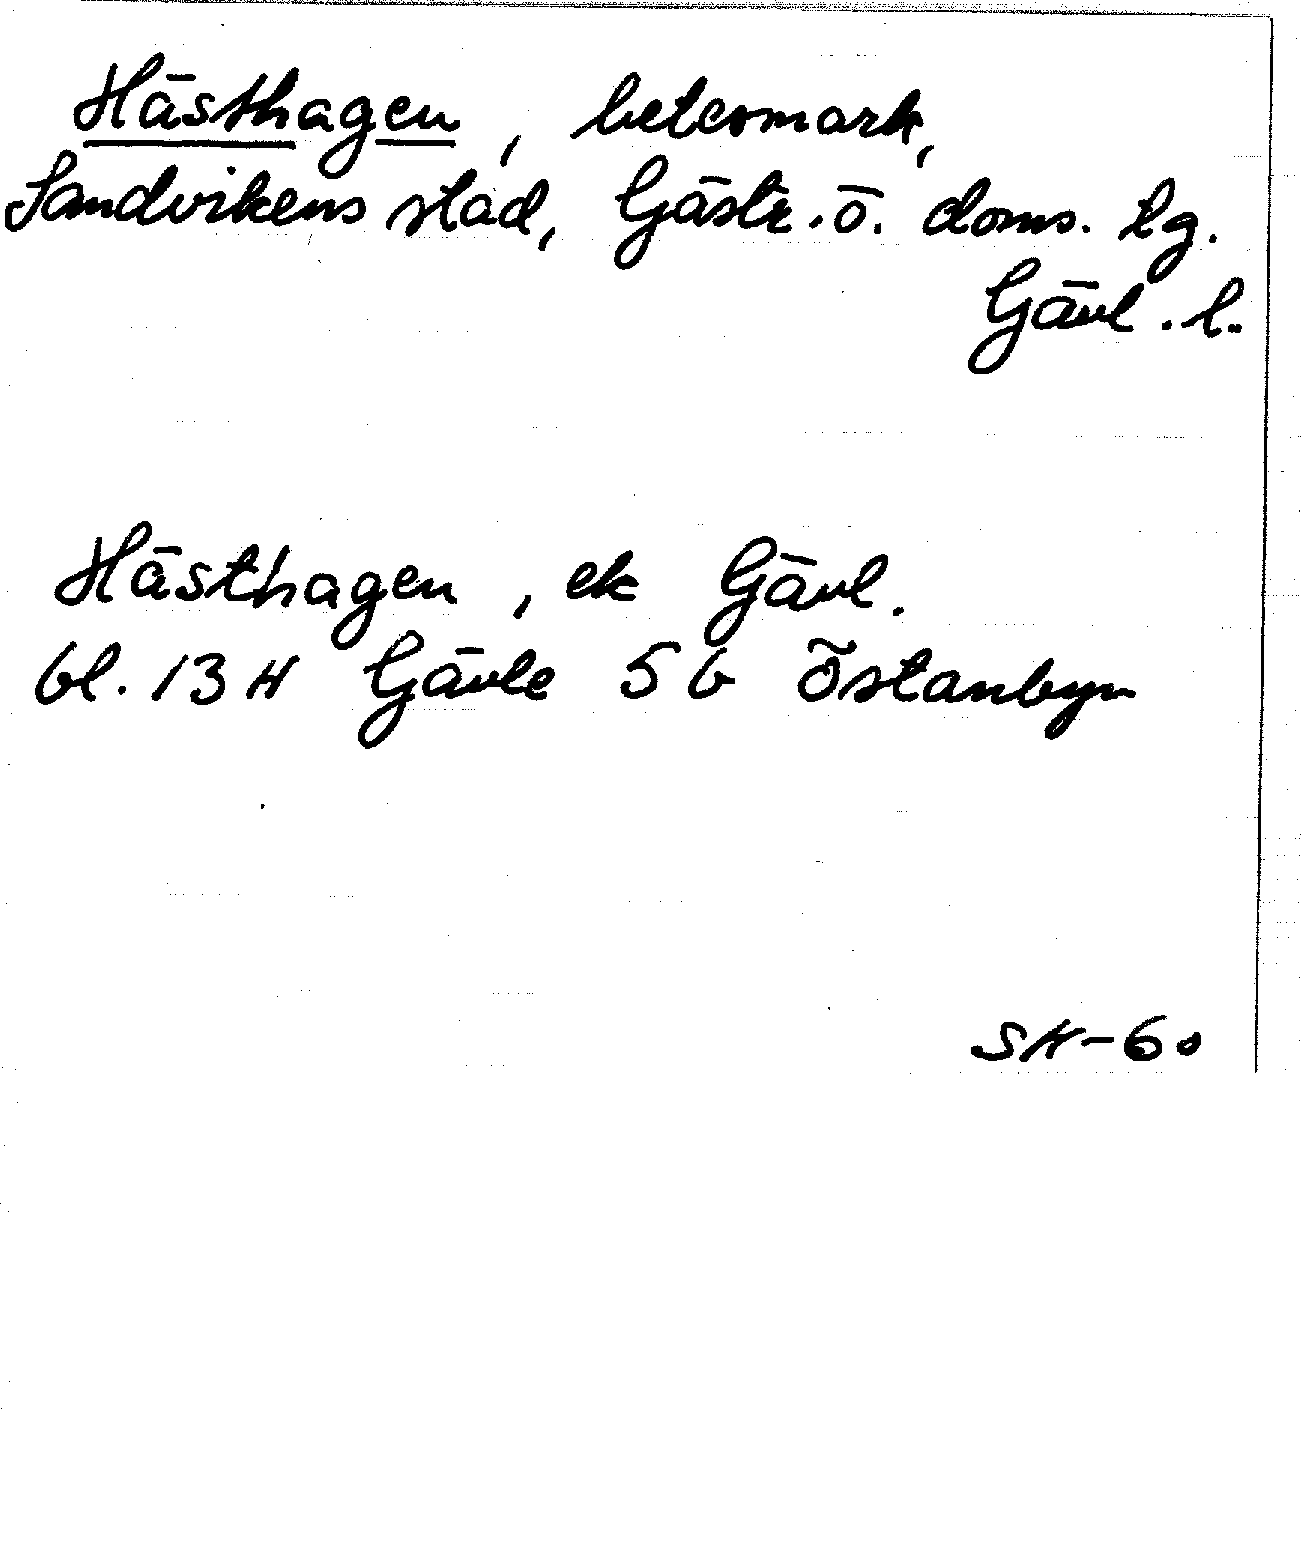 Hästhagen, betesmark,
Sandvikens stad, Gästr. ö. doms. tg.
Gävl. l.
Hästhagen, ek Gävl.
bl. 13 H Gävle 5 b Östanbyn
SH-60